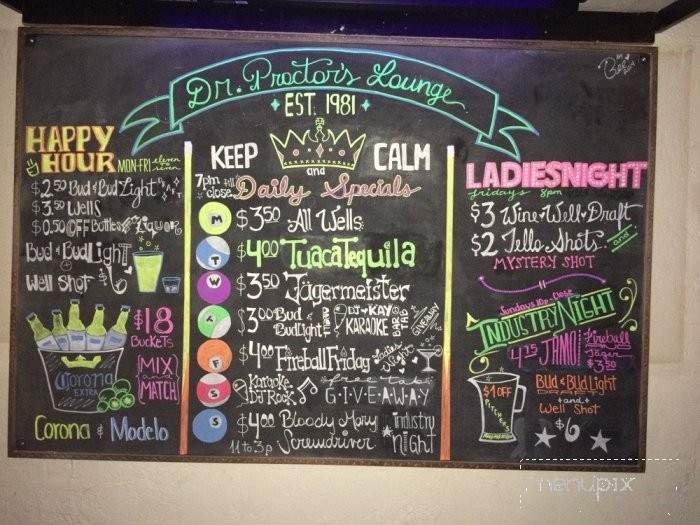 Dr. Proctor's Lounge
EST. 1981
HAPPY
HOUR
MON-FRI eleven
to
seven
$2.50 Bud & Bud Light
$3.50 Wells
$0.50 OFF Bottles & Liquor
Bud & Bud Light
Well Shot
$18
BUCKETS
MIX
and
MATCH
Corona
EXTRA
Corona & Modelo
KEEP
and
CALM
7pm till
close
Daily Specials
M $3.50 All Wells
T $4.00 Tuaca Tequila
W $3.50 Jägermeister
$3.00 Bud &
Bud Light
DJ KAY
KARAOKE
BAR
TAB
GIVEAWAY
F $4.00 Fireball Friday
Ladies
Night
S Karaoke
DJ Rock
free tab
G-I-V-E-A-W-A-Y
S $4.00 Bloody Mary
11 to 3p Screwdriver
industry
night
LADIES NIGHT
fridays 8pm
$3 Wine Well Draft
$2 Jello Shots
and
MYSTERY SHOT
Sundays 10p-Close
INDUSTRY NIGHT
4.75 JAMO
Fireball
Jäger
$3.50
$1 OFF
PITCHERS
Bud & Bud Light
DRAFT
and
Well Shot
$6
menupix